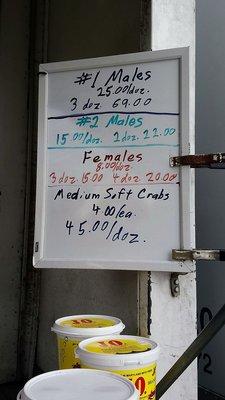 #1 Males
25.00/doz.
3 doz 69.00
#2 Males
15.00/doz. 2 doz 22.00
Females
8.00/doz
3 doz 15.00 4 doz 20.00
Medium Soft Crabs
4.00/ea.
45.00/doz.
J.O.
J.O.